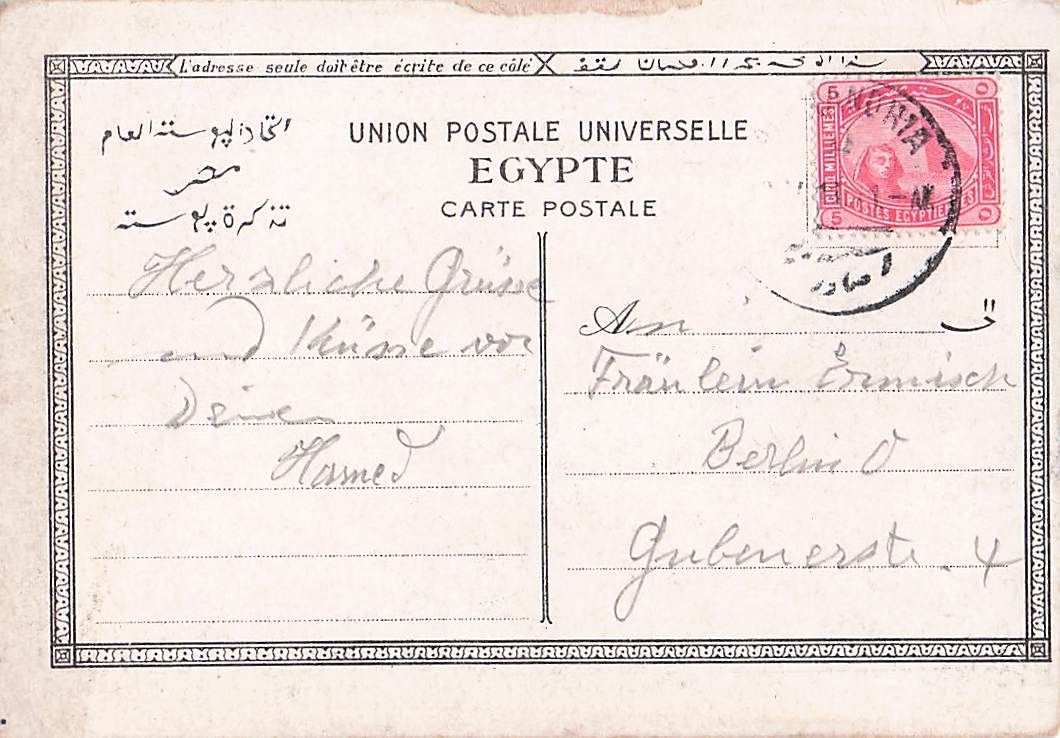 L'adresse seule doit être écrite de ce côlé
اتحاد البوسته العام
مصر
تذكرة بوسته
UNION POSTALE UNIVERSELLE
EGYPTE
CARTE POSTALE
5
5
CINQ MILLIEMES
POSTES EGYPTIENNES
Herzliche Grüsse
und Küsse von
Deinem
Hamed
An
الى
Fräulein Ermisch
Berlin O
Gubenerste. 4